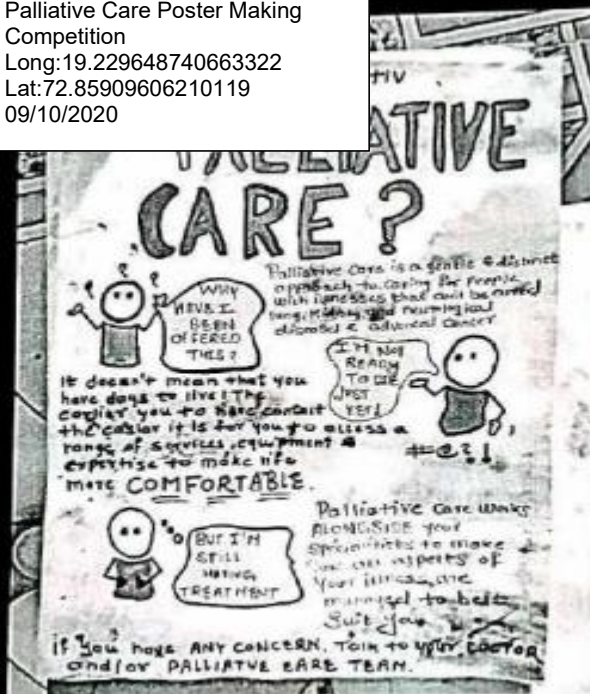 Palliative Care Poster Making
Competition
Long:19.229648740663322
Lat:72.85909606210119
09/10/2020
PALLIATIVE
CARE?
Palliative Care is a gentle & distinct
approach to caring for people
with illnesses that
lung, kidney, neurological
diseases & advanced cancer
WHY
HAVE I
BEEN
OFFERED
THIS?
I'M NOT
READY
TO DIE
JUST
YET!
It doesn't mean that you
have days to live! The
earlier you to have contact
the easier it is for you to access a
range of services, equipment &
expertise to make life
more COMFORTABLE.
#@?!
BUT I'M
STILL
HAVING
TREATMENT
Palliative Care works
ALONGSIDE your
specialists to make
aspects of
your illness are
managed to best
Suit you
if you have ANY CONCERN, Talk to your DOCTOR
and/or PALLIATVE CARE TEAM.